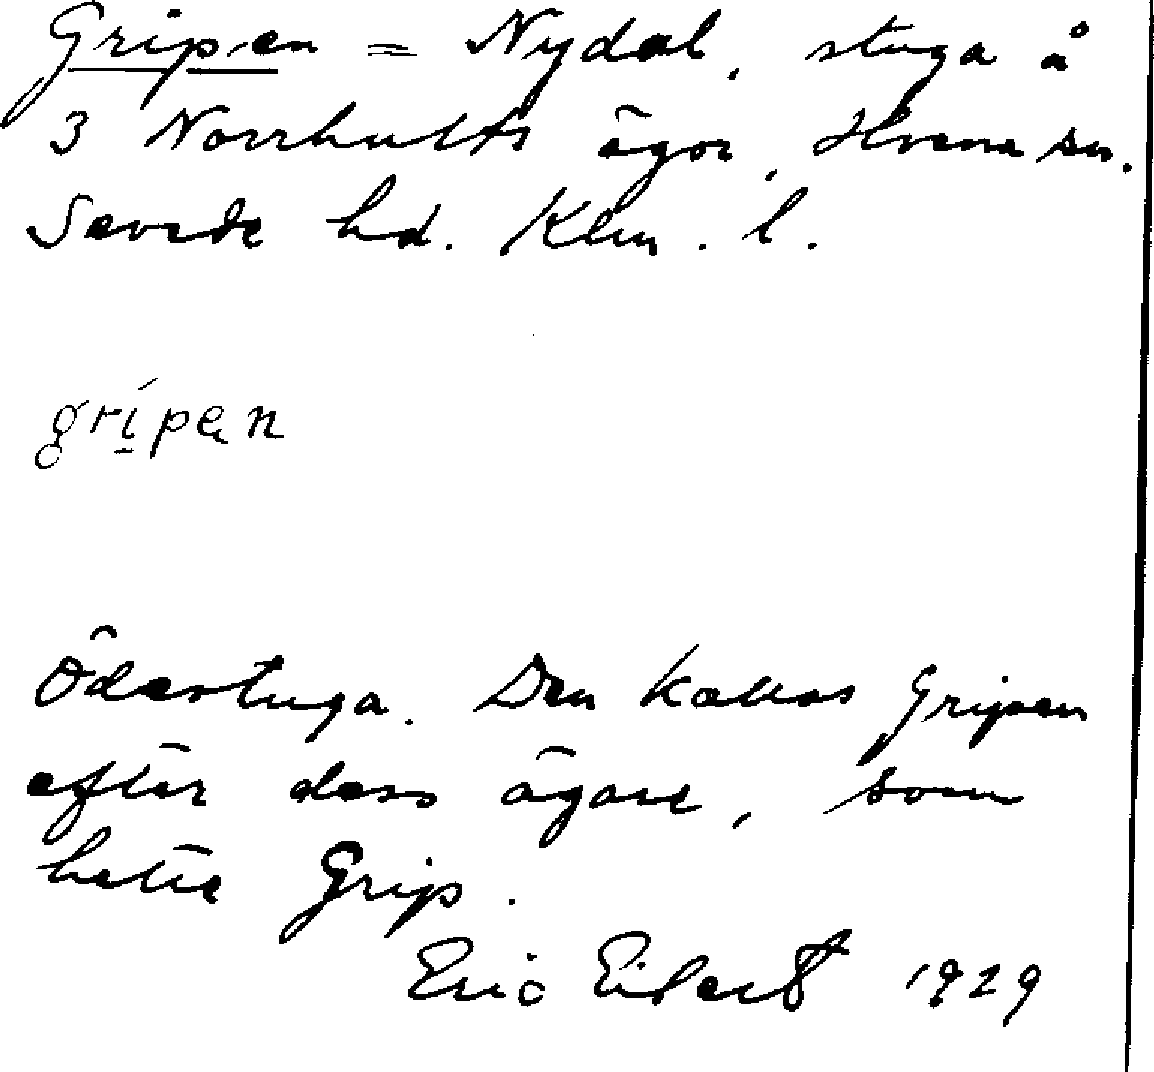 Gripen = Nydal, stuga å
3 Norrhults ägor, Hvena sn.
Sevede hd. Klm. l.
gripen
Ödestuga. Den kallas Gripen
efter dess ägare, som
hette Grip.
Eric Eilert 1929